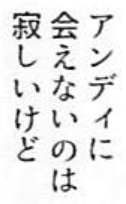 アンディに
会えないのは
寂しいけど